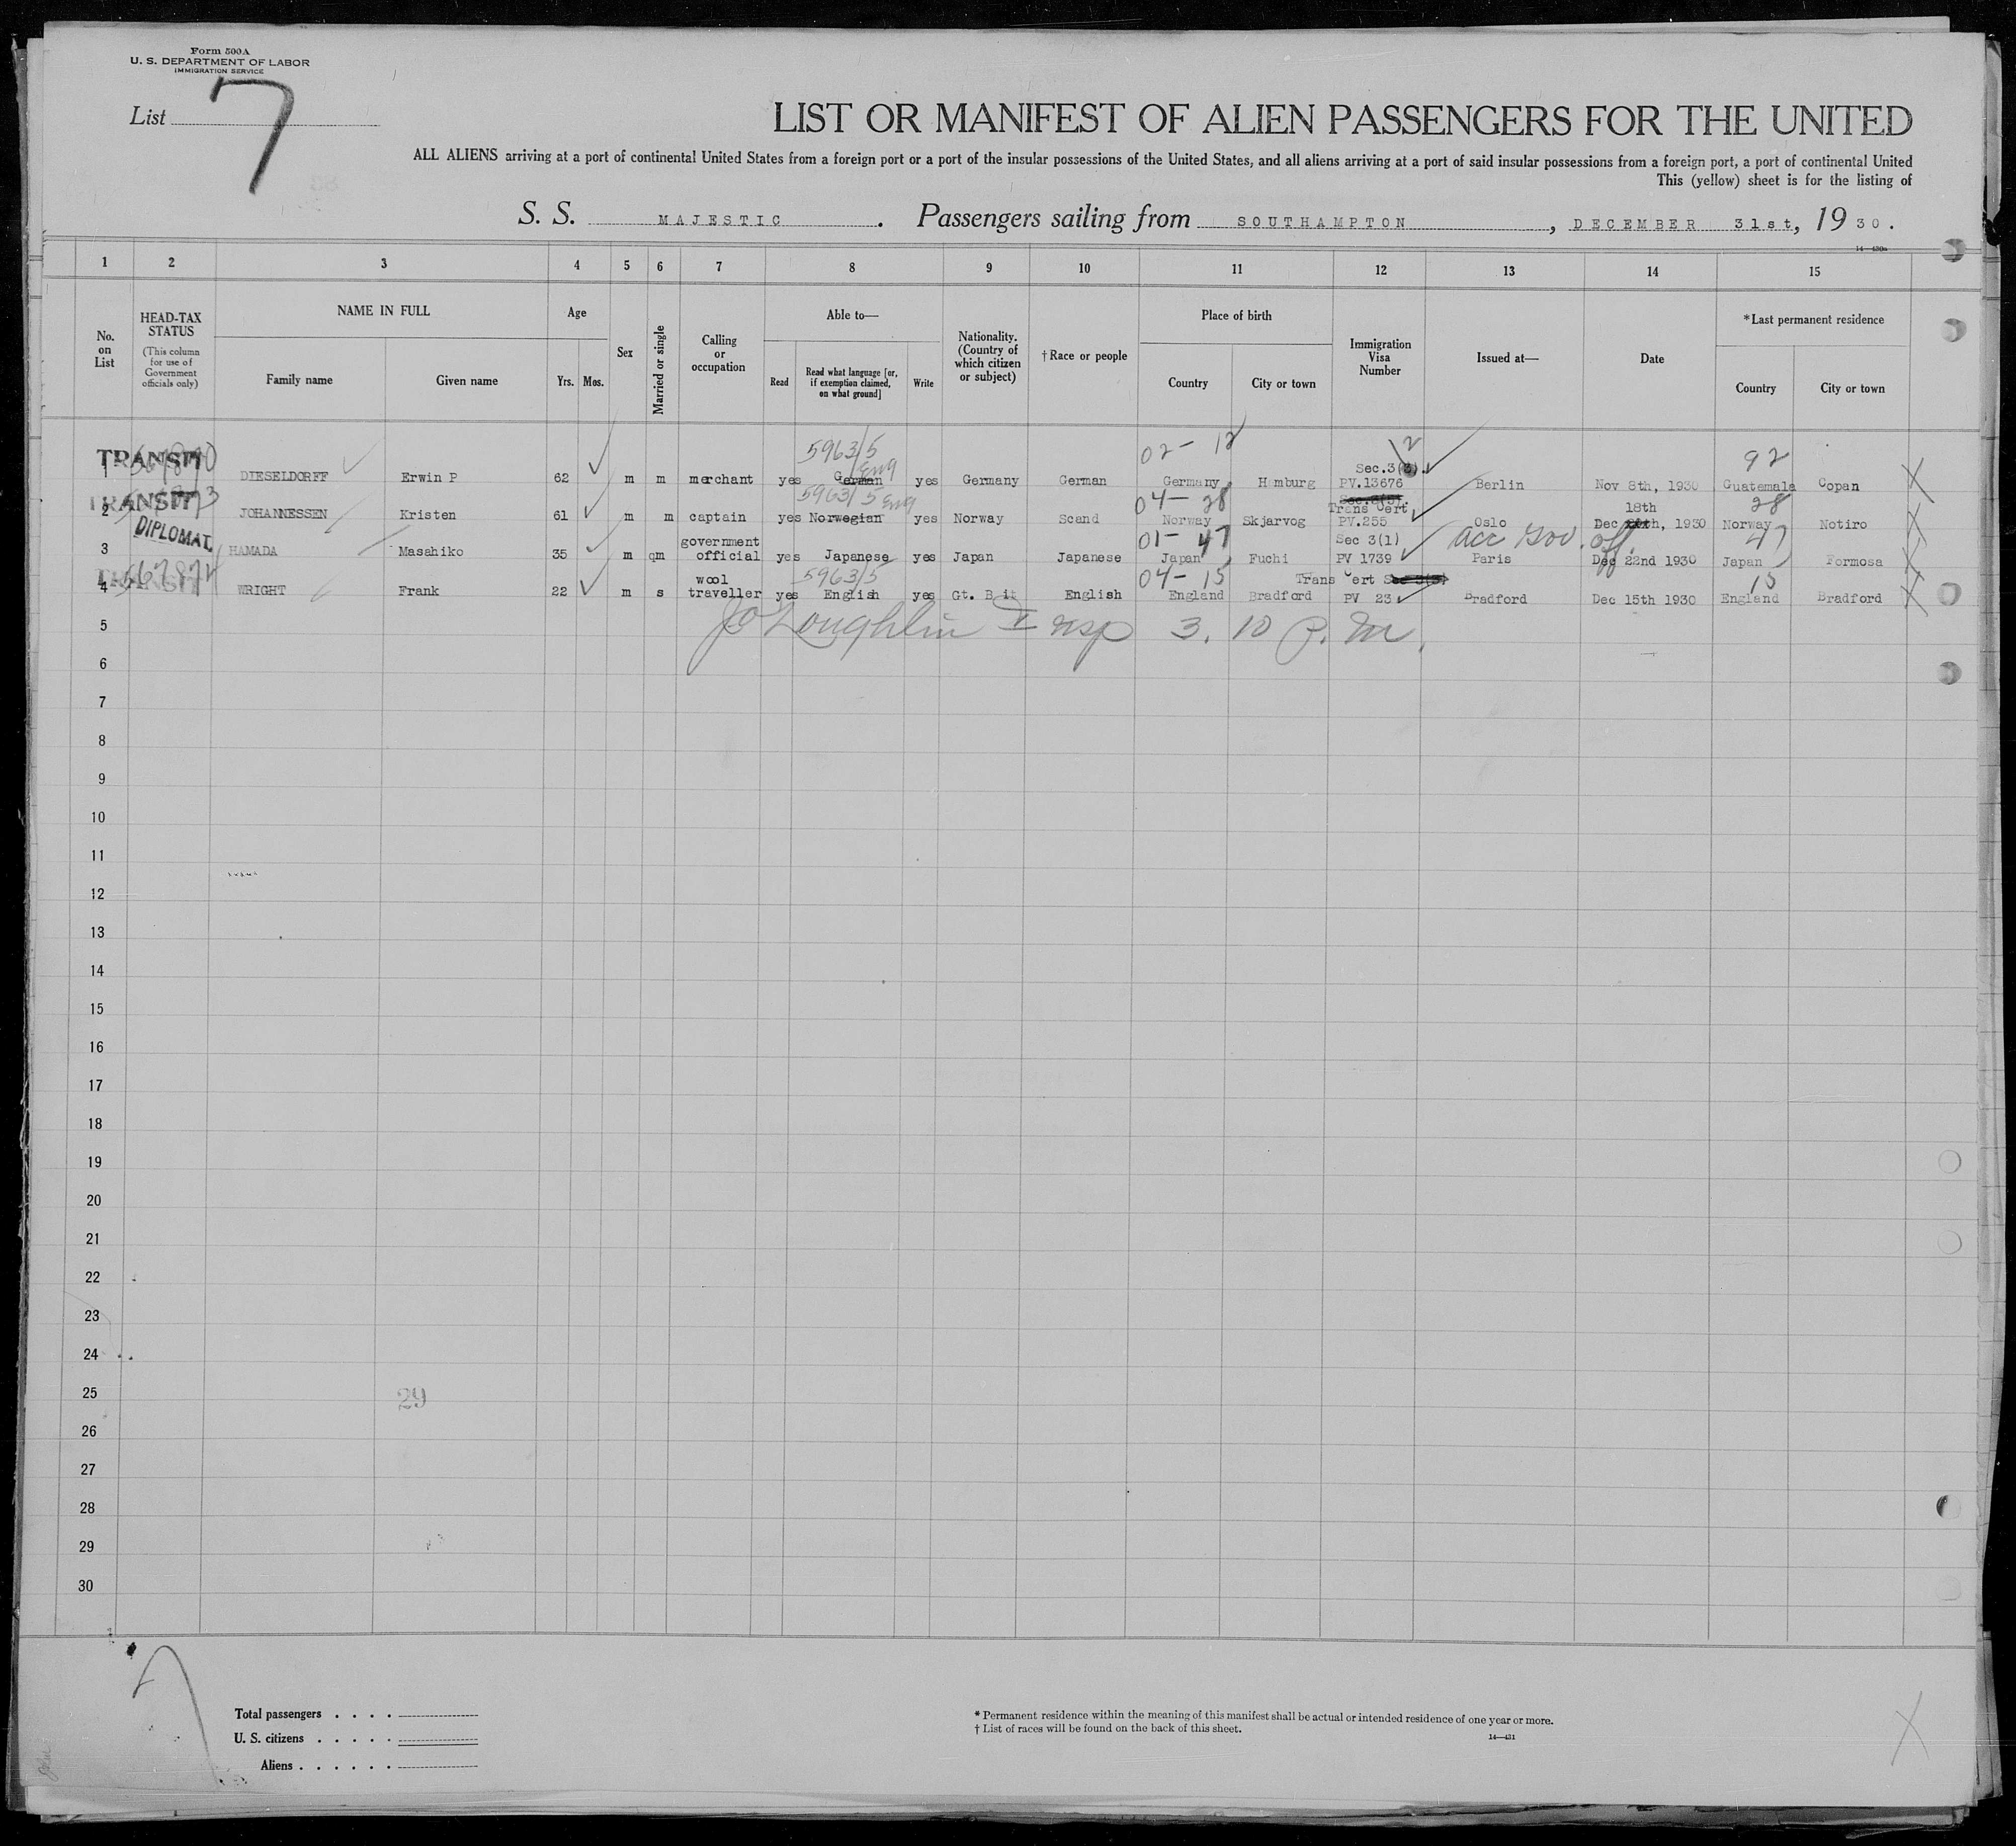 Form 500A
U. S. DEPARTMENT OF LABOR
IMMIGRATION SERVICE
List 7
LIST OR MANIFEST OF ALIEN PASSENGERS FOR THE UNITED
ALL ALIENS arriving at a port of continental United States from a foreign port or a port of the insular possessions of the United States, and all aliens arriving at a port of said insular possessions from a foreign port, a port of continental United
This (yellow) sheet is for the listing of
S. S. MAJESTIC. Passengers sailing from SOUTHAMPTON, DECEMBER 31st, 1930.
14—430a
1 2 3 4 5 6 7 8 9 10 11 12 13 14 15
No. on List
HEAD-TAX STATUS
(This column for use of Government officials only)
NAME IN FULL
Family name Given name
Age
Yrs. Mos.
Sex
Married or single
Calling or occupation
Able to—
Read
Read what language [or, if exemption claimed, on what ground]
Write
Nationality. (Country of which citizen or subject)
† Race or people
Place of birth
Country City or town
Immigration Visa Number
Issued at—
Date
*Last permanent residence
Country City or town
5963/5 02- 12 2 92
TRANSIT Eng Sec.3(
1 DIESELDORFF Erwin P 62 m m merchant yes German yes Germany German Germany Hamburg PV.13676 Berlin Nov 8th, 1930 Guatemala Copan X
TRANSIT 5963/5 Eng 04- 28 Sec.3(3). Trans Cert. 18th 28
2 JOHANNESSEN Kristen 61 m m captain yes Norwegian yes Norway Scand Norway Skjarvog PV.255 Oslo Dec th, 1930 Norway Notiro X
DIPLOMAT. government 01- 47 Sec 3(1) acc Gov. off. 47
3 HAMADA Masahiko 35 m m official yes Japanese yes Japan Japanese Japan Fuchi PV 1739 Paris Dec 22nd 1930 Japan Formosa X
TRANSIT 567872 wool 5963/5 04- 15 Trans Cert 15
4 WRIGHT Frank 22 m s traveller yes English yes Gt. B it English England Bradford PV 23 Bradford Dec 15th 1930 England Bradford X
5 JO'Loughlin Insp 3.10 P.M.
6
7
8
9
10
11
12
13
14
15
16
17
18
19
20
21
22
23
24
25
29
26
27
28
29
30
7
Total passengers . . . .
U. S. citizens . . . . .
Aliens . . . . . .
* Permanent residence within the meaning of this manifest shall be actual or intended residence of one year or more.
† List of races will be found on the back of this sheet.
14—431
X